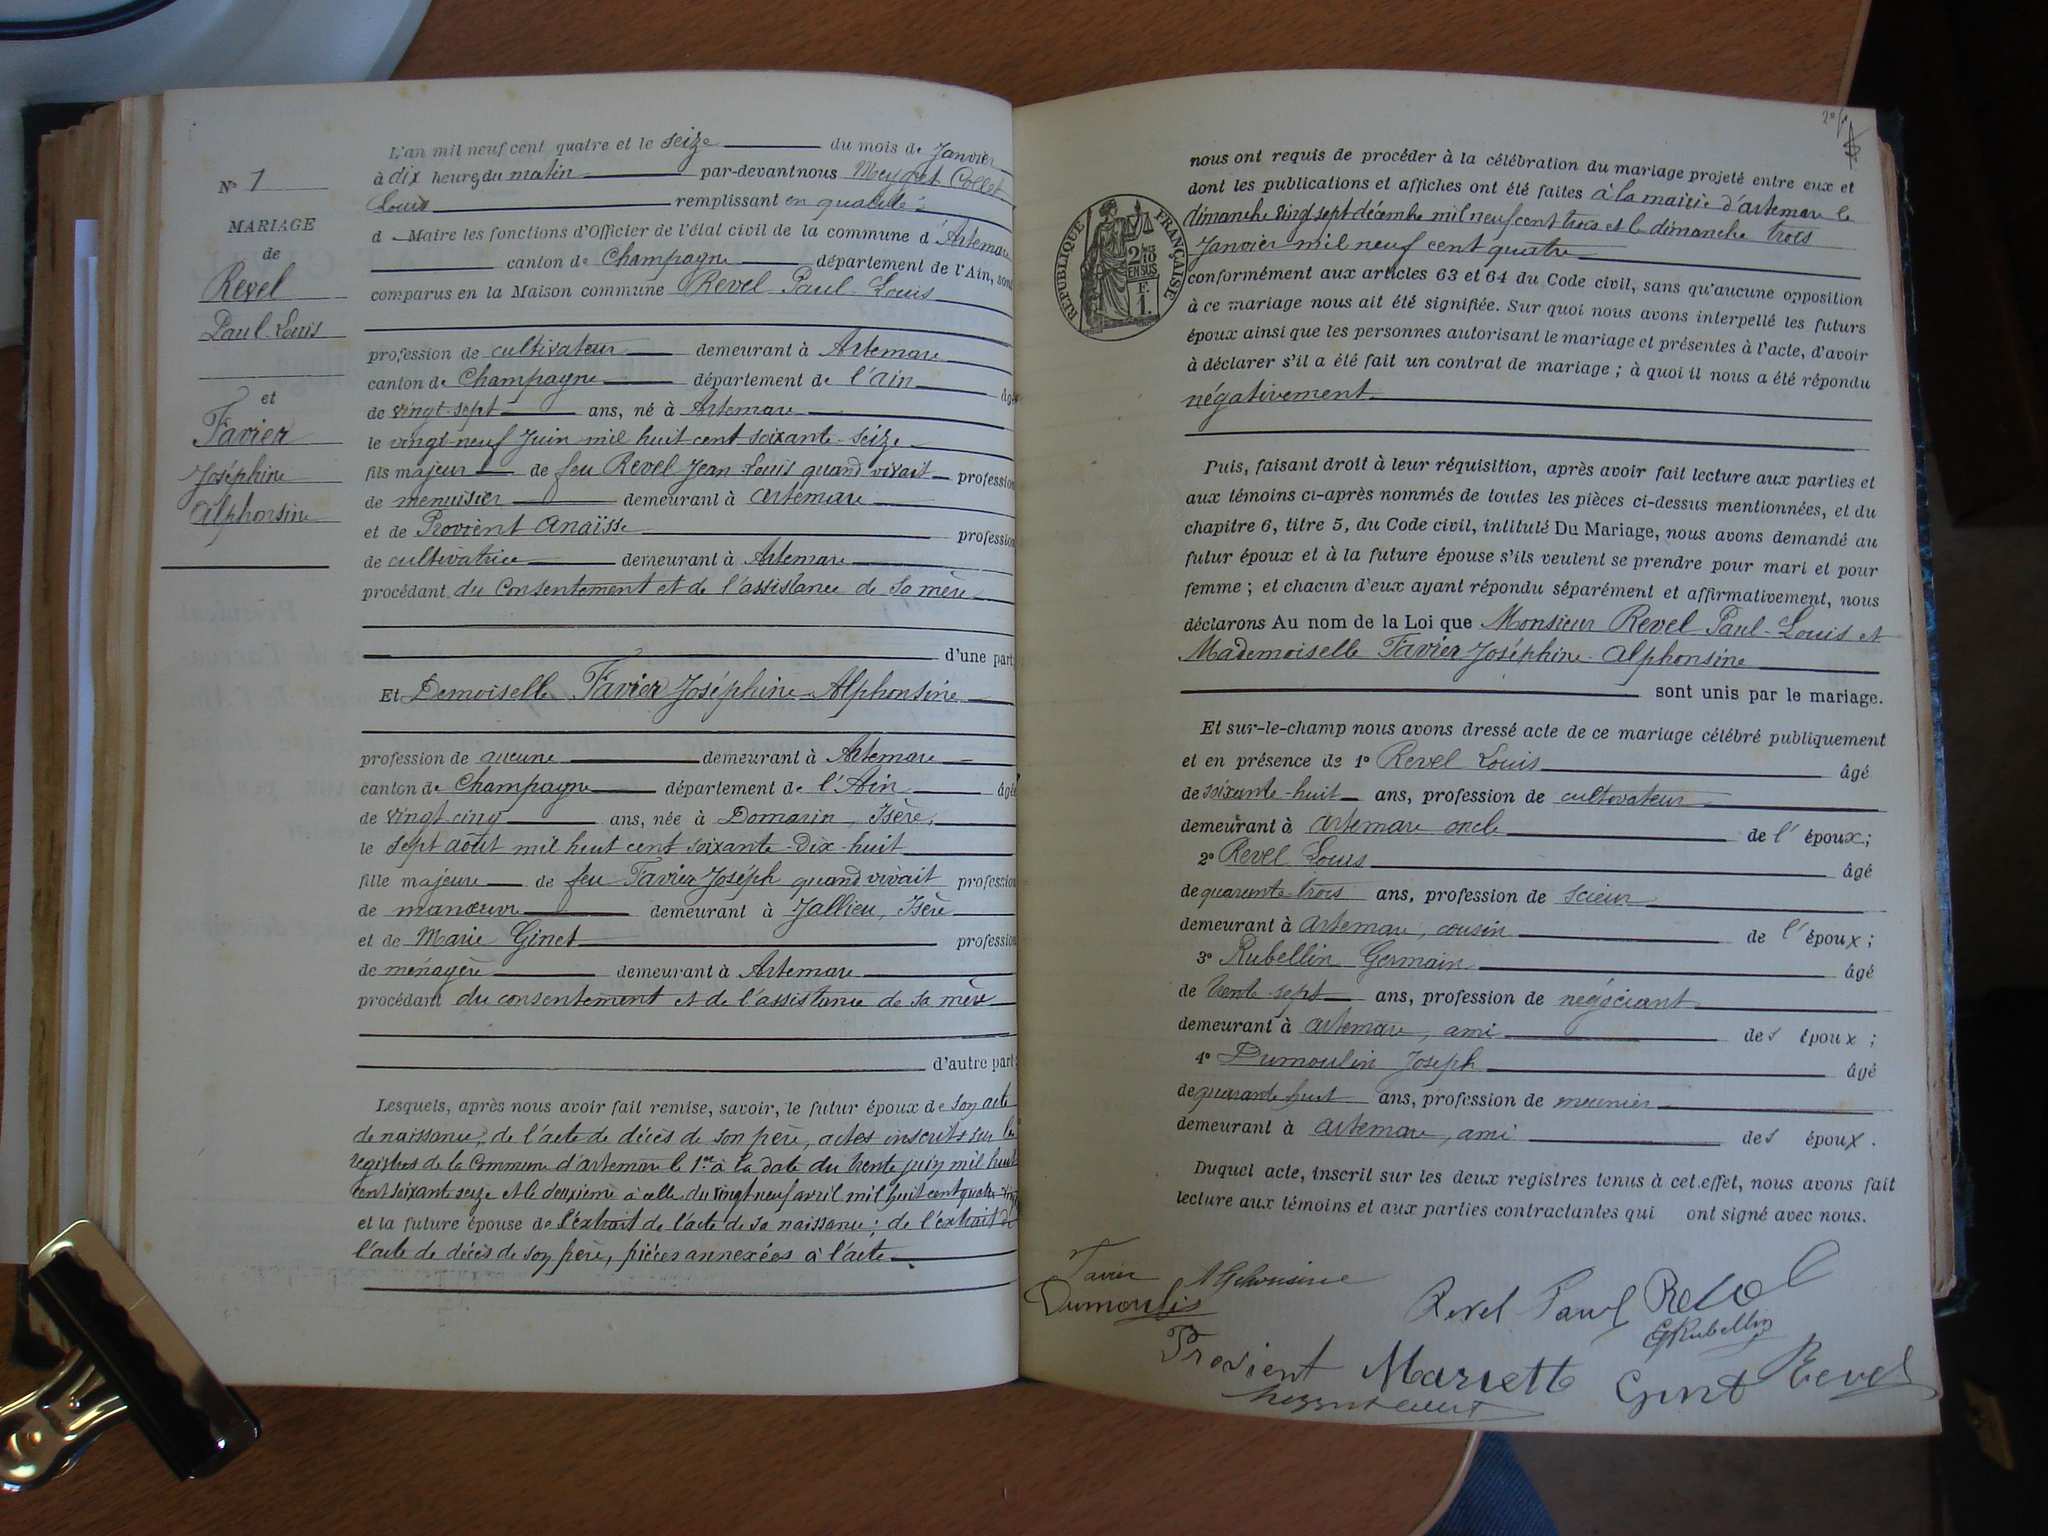 N° 1
MARIAGE
de
Revel
Paul-Louis
et
Favier
Joséphine
Alphonsine
L'an mil neuf cent quatre et le seize du mois de Janvier
à dix heures du matin par-devant nous Meyget Collet
Louis remplissant en qualité
d Maire les fonctions d'Officier de l'état civil de la commune d'Artemare
canton de Champagne département de l'Ain, sont
comparus en la Maison commune Revel Paul-Louis
profession de cultivateur demeurant à Artemare
canton de Champagne département de l'Ain âgé
de vingt-sept ans, né à Artemare
le vingt-neuf Juin mil huit cent soixante-seize
fils majeur de feu Revel Jean-Louis quand vivait profession
de menuisier demeurant à Artemare
et de Provient Anaïsse profession
de cultivatrice demeurant à Artemare
procédant du consentement et de l'assistance de sa mère
d'une part;
Et Demoiselle Favier Joséphine-Alphonsine
profession de aucune demeurant à Artemare
canton de Champagne département de l'Ain âgée
de vingt cinq ans, née à Domarin, Isère,
le sept août mil huit cent soixante-dix-huit
fille majeure de feu Favier Joséph quand vivait profession
de manœuvre demeurant à Jallieu, Isère
et de Marie Ginet profession
de ménagère demeurant à Artemare
procédant du consentement et de l'assistance de sa mère
d'autre part;
Lesquels, après nous avoir fait remise, savoir, le futur époux de son acte
de naissance, de l'acte de décès de son père, actes inscrits sur les
registres de la Commune d'Artemare le 1er à la date du trente juin mil huit
cent soixante seize et le deuxième à celle du vingt neuf avril mil huit cent quatre-vingt
et la future épouse de l'extrait de l'acte de sa naissance; de l'extrait de
l'acte de décès de son père, pièces annexées à l'acte.
nous ont requis de procéder à la célébration du mariage projeté entre eux et
dont les publications et affiches ont été faites à la mairie d'Artemare le
dimanche vingt sept décembre mil neuf cent trois et le dimanche trois
Janvier mil neuf cent quatre
conformément aux articles 63 et 64 du Code civil, sans qu'aucune opposition
à ce mariage nous ait été signifiée. Sur quoi nous avons interpellé les futurs
époux ainsi que les personnes autorisant le mariage et présentes à l'acte, d'avoir
à déclarer s'il a été fait un contrat de mariage; à quoi il nous a été répondu
négativement.
RÉPUBLIQUE FRANÇAISE
2/10
EN SUS
F.
1.
Puis, faisant droit à leur réquisition, après avoir fait lecture aux parties et
aux témoins ci-après nommés de toutes les pièces ci-dessus mentionnées, et du
chapitre 6, titre 5, du Code civil, intitulé Du Mariage, nous avons demandé au
futur époux et à la future épouse s'ils veulent se prendre pour mari et pour
femme; et chacun d'eux ayant répondu séparément et affirmativement, nous
déclarons Au nom de la Loi que Monsieur Revel Paul-Louis et
Mademoiselle Favier Joséphine-Alphonsine
sont unis par le mariage.
Et sur-le-champ nous avons dressé acte de ce mariage célébré publiquement
et en présence de 1° Revel Louis âgé
de soixante-huit ans, profession de cultivateur
demeurant à Artemare oncle de l'époux;
2° Revel Louis âgé
de quarante-trois ans, profession de scieur
demeurant à Artemare, cousin de l'époux;
3° Rubellin Germain âgé
de trente-sept ans, profession de négociant
demeurant à Artemare, ami des époux;
4° Dumoulin Joseph âgé
de quarante huit ans, profession de meunier
demeurant à Artemare, ami des époux.
Duquel acte, inscrit sur les deux registres tenus à cet effet, nous avons fait
lecture aux témoins et aux parties contractantes qui ont signé avec nous.
Favier Alphonsine
Dumoulin
Revel Paul Revel
G Rubellin
Provient Mariette Ginet Revel